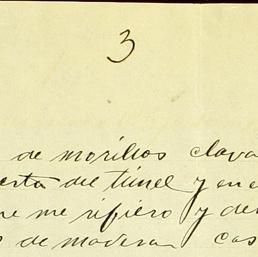 3
de morillos clava
erta del túnel y en e
ue me refiero y de
s de madera cos